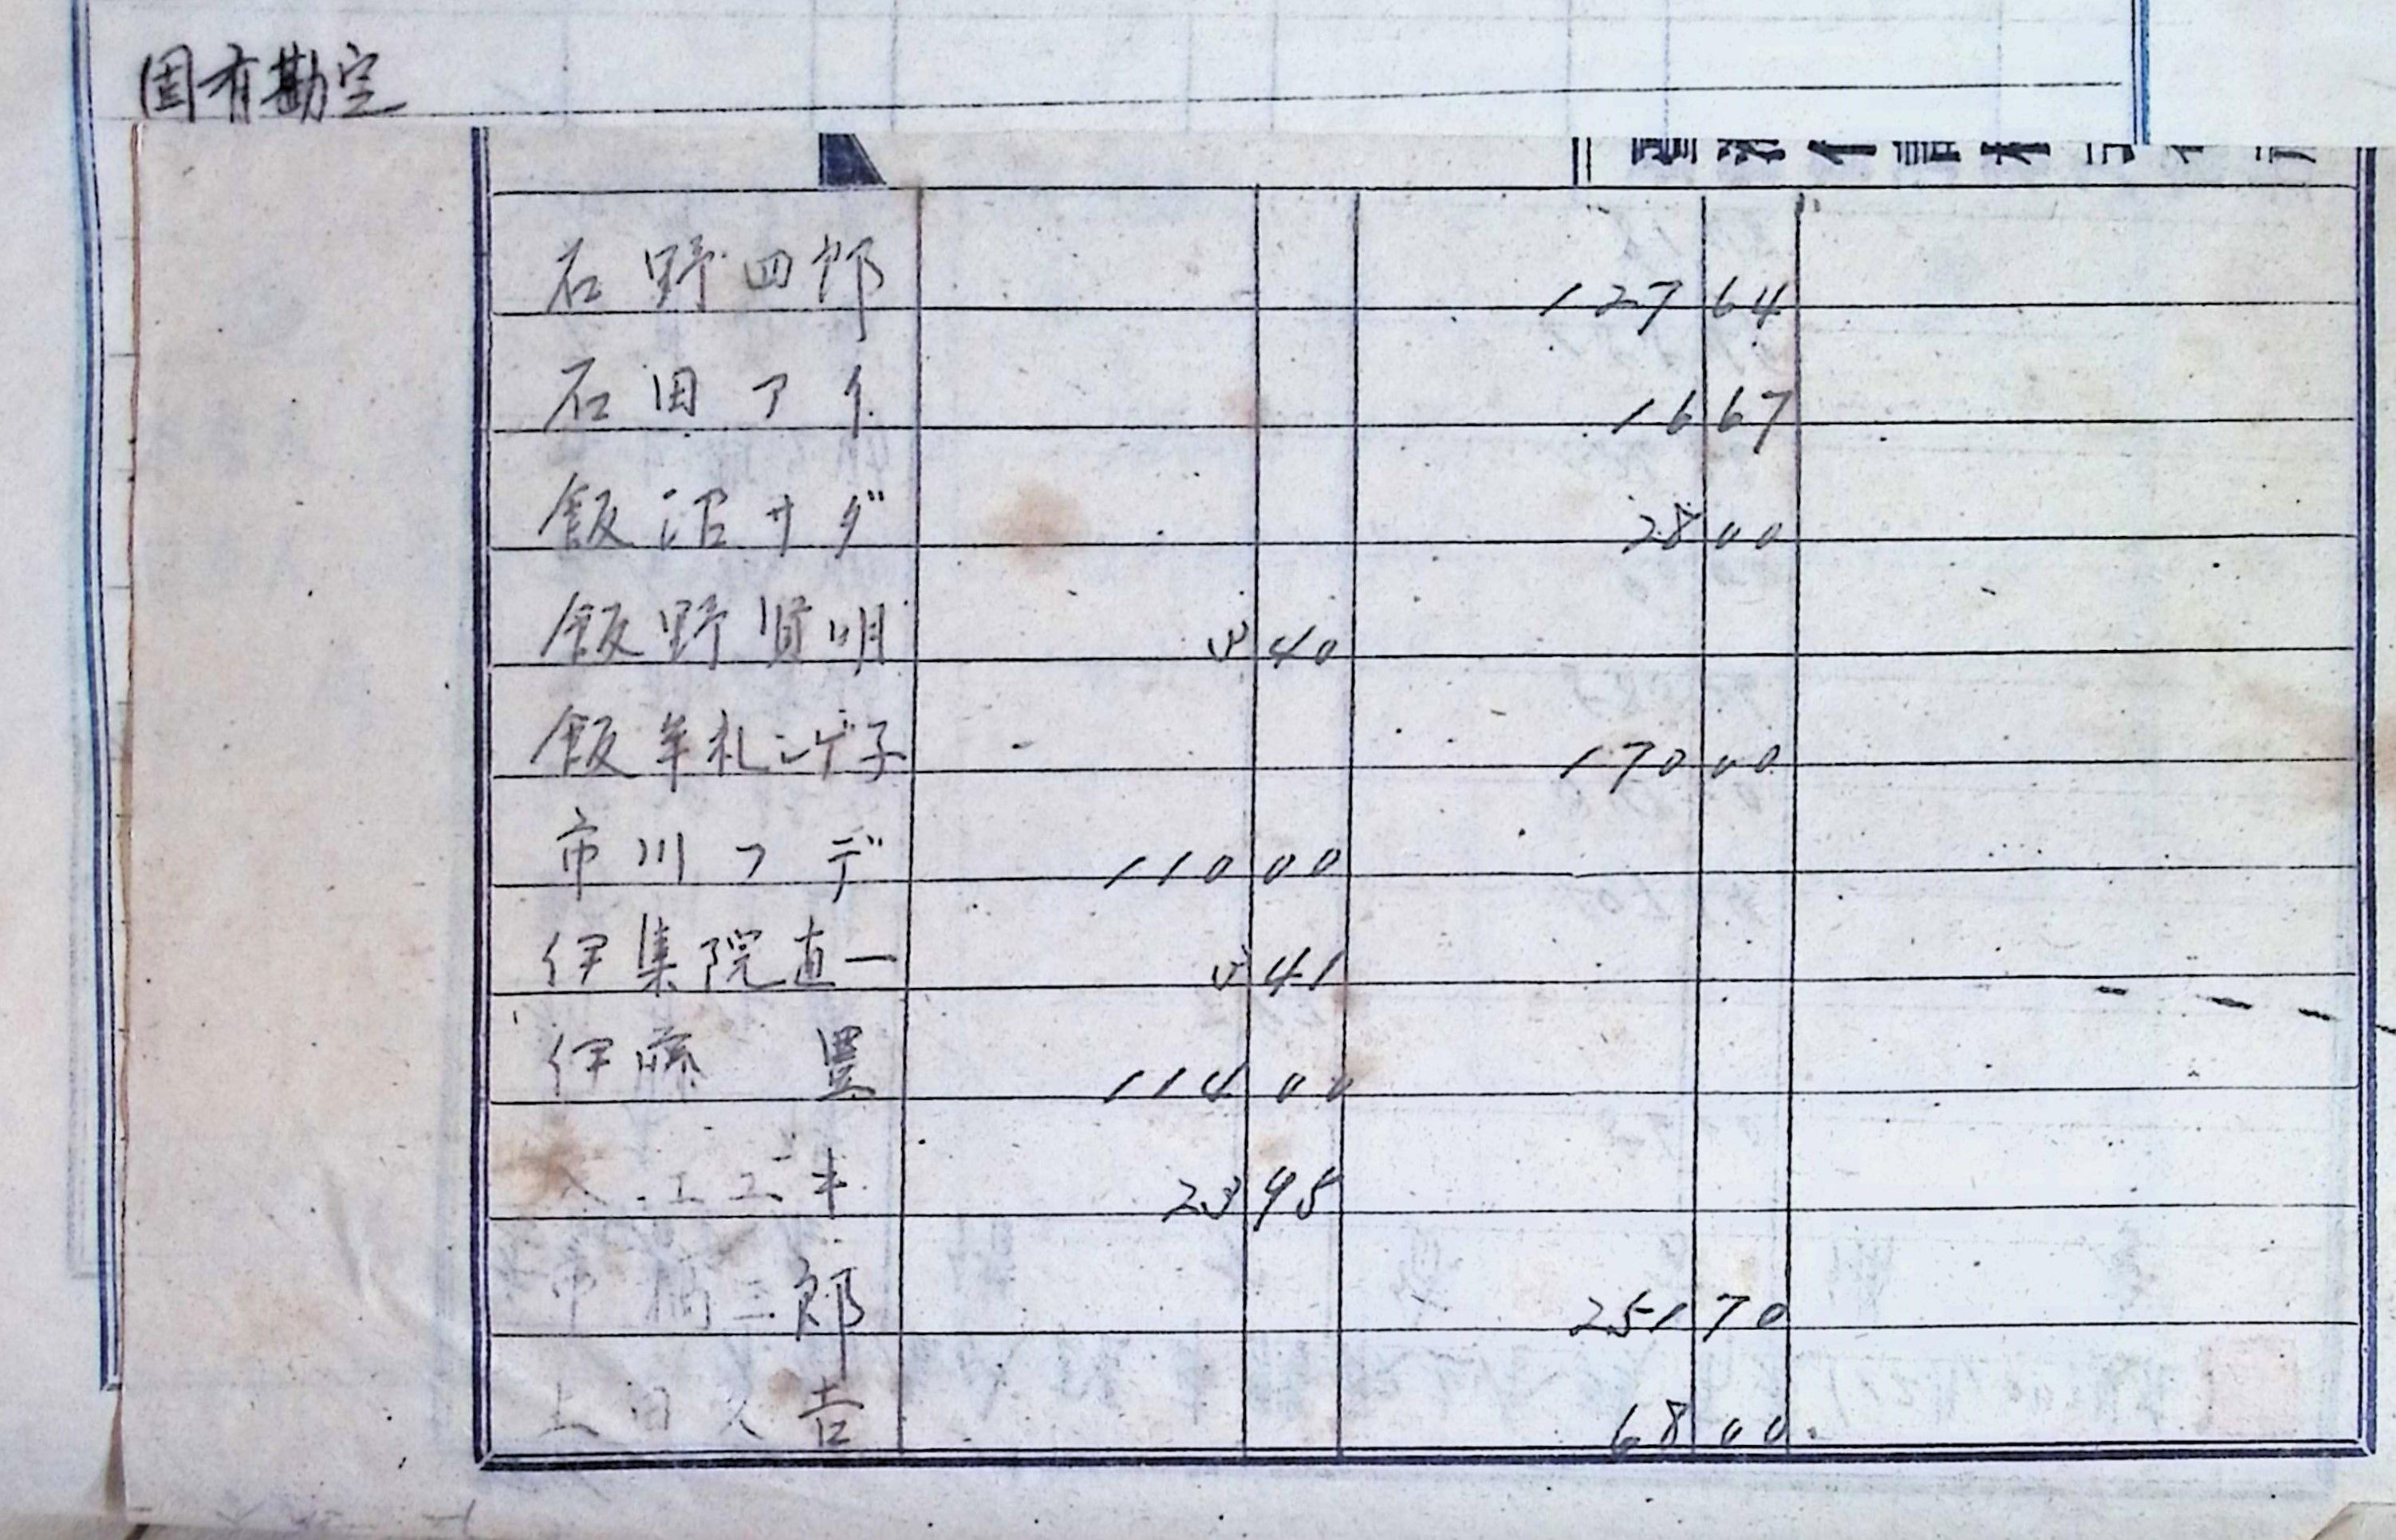 固有勘定
石野四郎 127 64
石田アイ 16 67
飯沼サダ 28 00
飯野賢明 3 40
飯牟礼シゲ子 170 00
市川フデ 110 00
伊集院直一 3 41
伊藤 豊 114 00
23 95
三郎 251 70
上田久吉 68 00